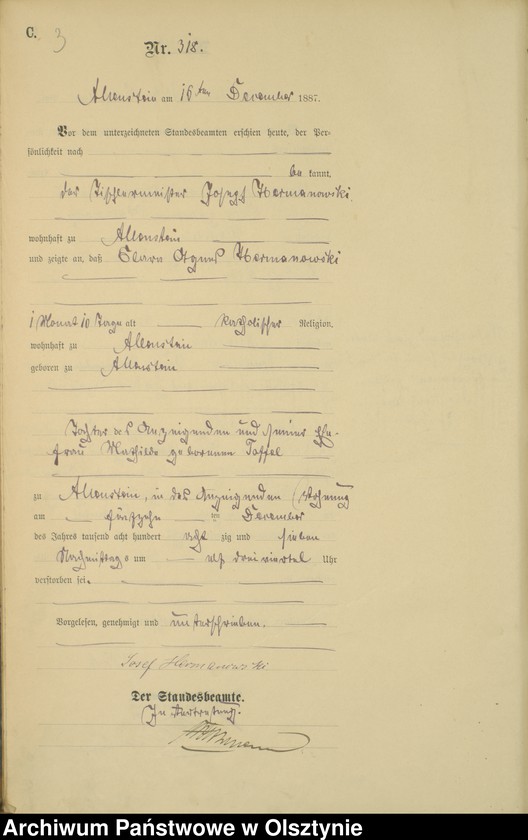 C. 3
Nr. 318.
Allenstein am 16ten December 1887.
Vor dem unterzeichneten Standesbeamten erschien heute, der Per-
sönlichkeit nach
be kannt,
der Tischlermeister Joseph Hermanowski,
wohnhaft zu Allenstein
und zeigte an, daß Clara Agnes Hermanowski
1 Monat 10 Tage alt katholischer Religion,
wohnhaft zu Allenstein
geboren zu Allenstein
Tochter des Anzeigenden und seiner Ehe-
frau Mathilde geborenen Toffel
zu Allenstein, in des Anzeigenden Wohnung
am fünfzehn ten December
des Jahres tausend acht hundert acht zig und sieben
Nachmittags um elf dreiviertel Uhr
verstorben sei.
Vorgelesen, genehmigt und unterschrieben.
Josef Hermanowski
Der Standesbeamte.
In Vertretung.
Archiwum Państwowe w Olsztynie